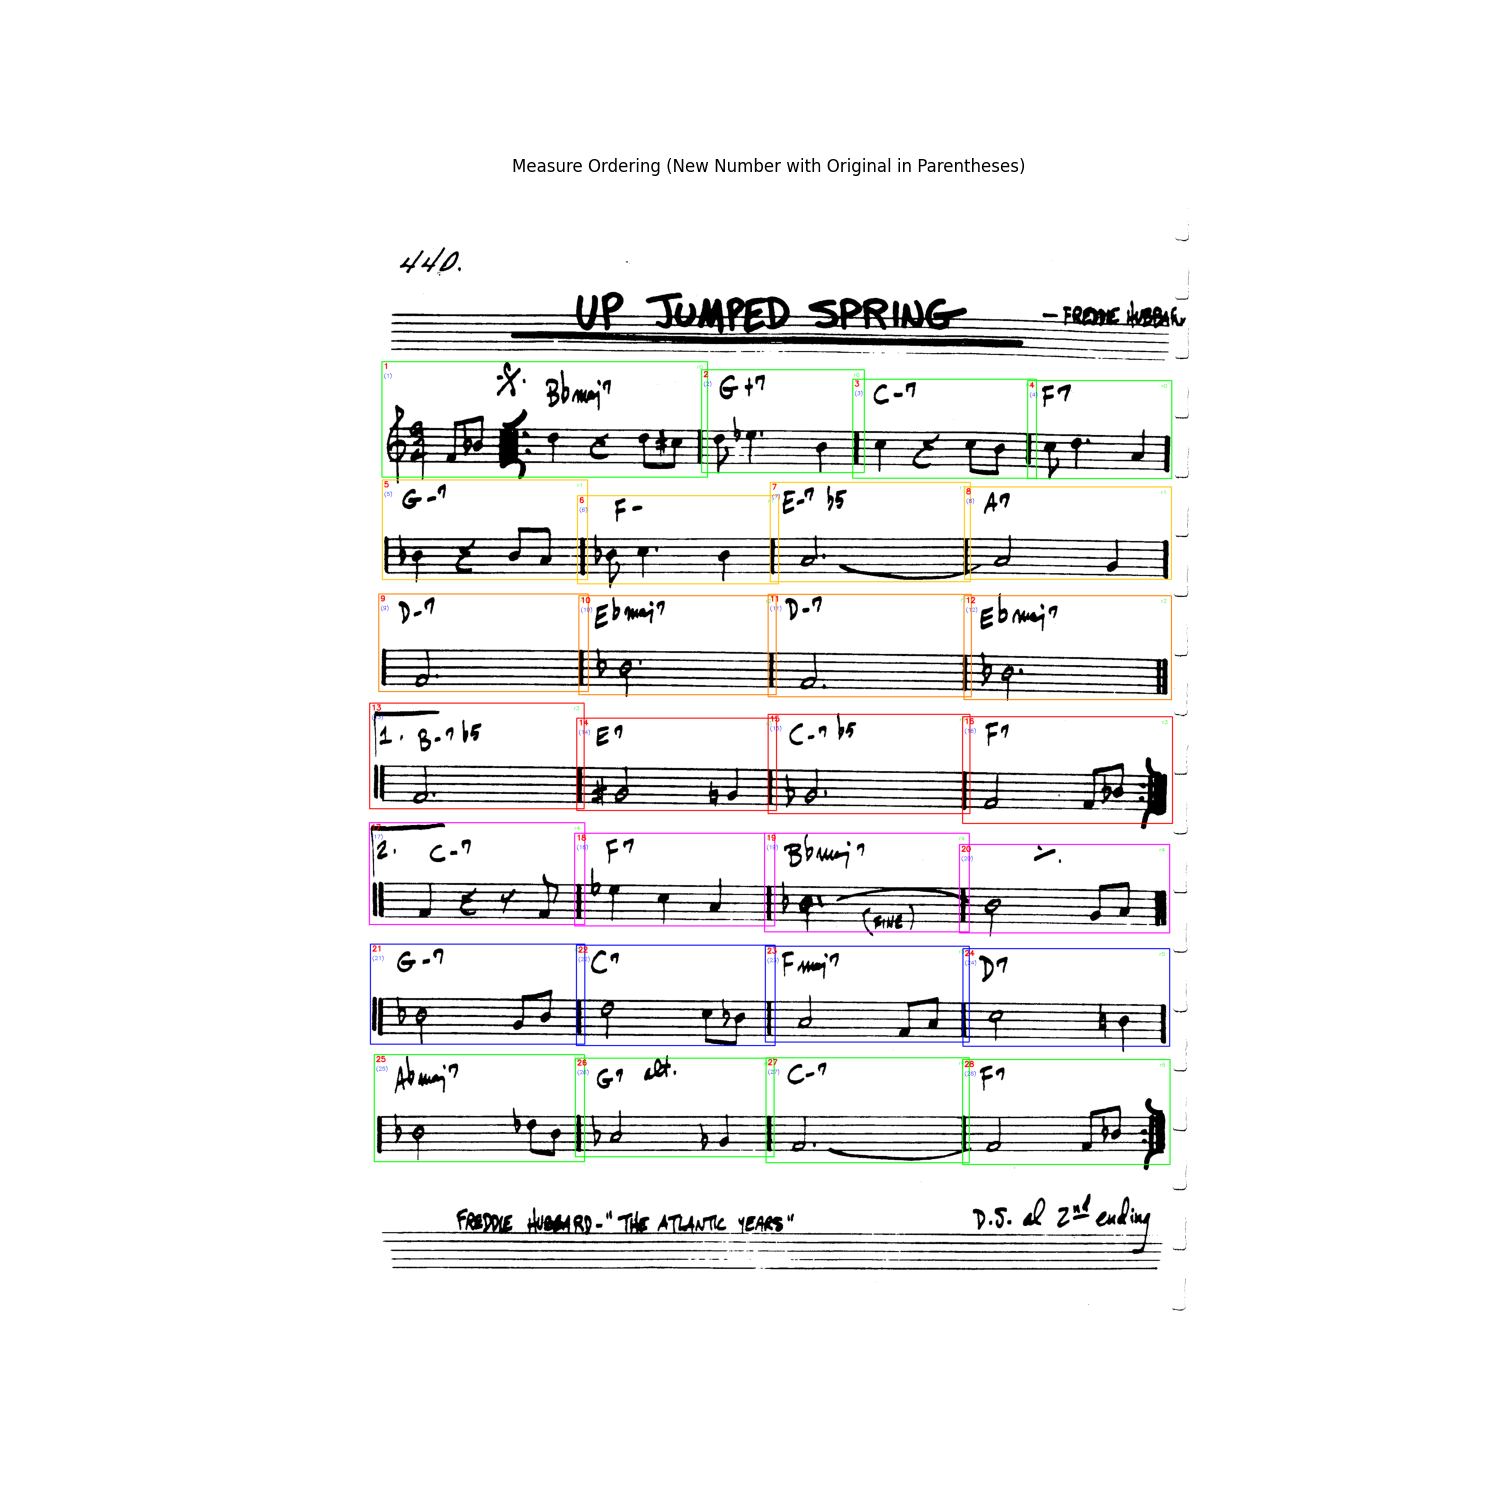 Measure Ordering (New Number with Original in Parentheses)
440.
UP JUMPED SPRING
— FREDDIE HUBBAR
1 (1) Bb maj7 2 (2) G+7 3 (3) C-7 4 (4) F7
5 (5) G-7 6 (6) F- 7 (7) E-7 b5 8 (8) A7
9 (9) D-7 10 (10) Eb maj7 11 (11) D-7 12 (12) Eb maj7
13 (13) 1. B-7 b5 14 (14) E7 15 (15) C-7 b5 16 (16) F7
17 (17) 2. C-7 18 (18) F7 19 (19) Bb maj7 20 (20)
(FINE)
21 (21) G-7 22 (22) C7 23 (23) F maj7 24 (24) D7
25 (25) Ab maj7 26 (26) G7 alt. 27 (27) C-7 28 (28) F7
FREDDIE HUBBARD-"THE ATLANTIC YEARS"
D.S. al 2nd ending